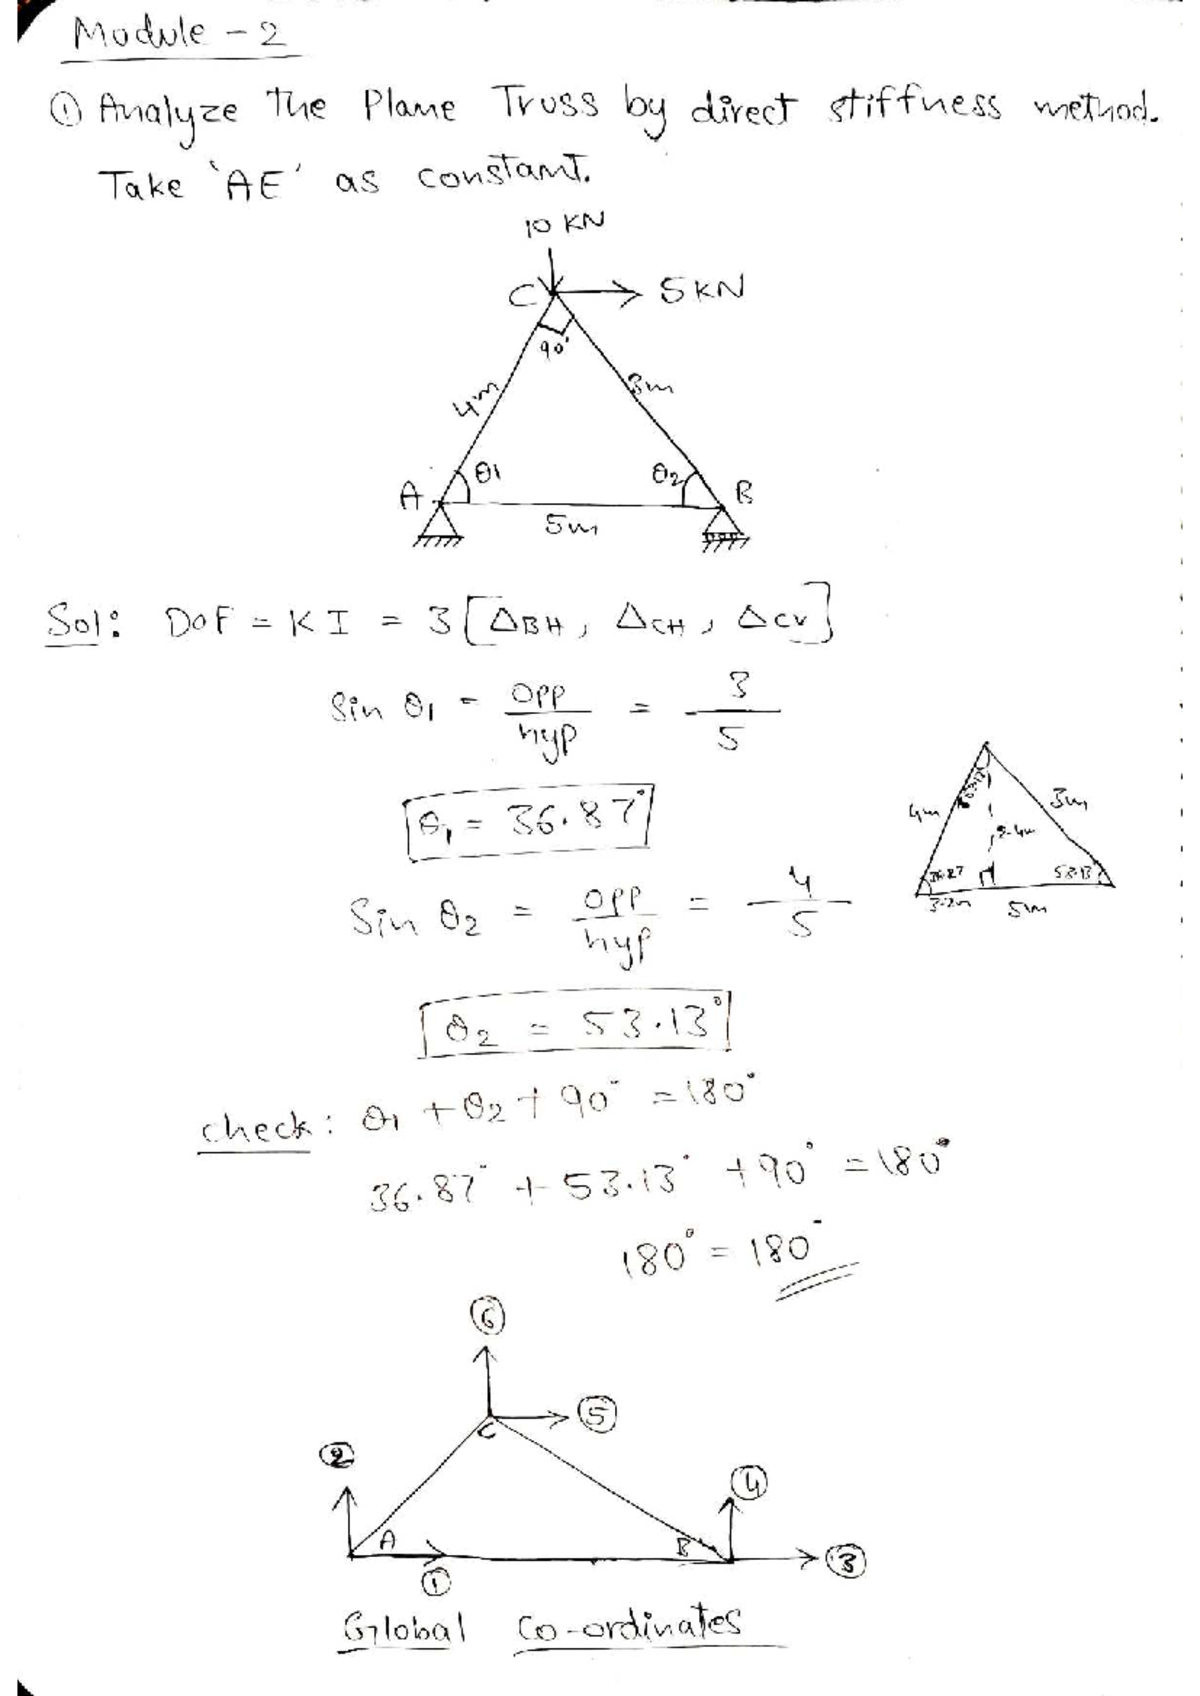 Module - 2
① Analyze The Plane Truss by direct stiffness method.
Take 'AE' as constant.
10 KN
C
5 KN
90°
4m
3m
A
θ1
θ2
B
5m
Sol: DOF = KI = 3 [ΔBH, ΔCH, ΔCV]
Sin θ1 = opp/hyp = 3/5
θ1 = 36.87°
4m
3m
2.4m
36.87
53.13°
3.2m
5m
Sin θ2 = opp/hyp = 4/5
θ2 = 53.13°
check: θ1 + θ2 + 90° = 180°
36.87° + 53.13° + 90° = 180°
180° = 180°
⑥
⑤
C
②
④
A
B
③
①
Global Co-ordinates